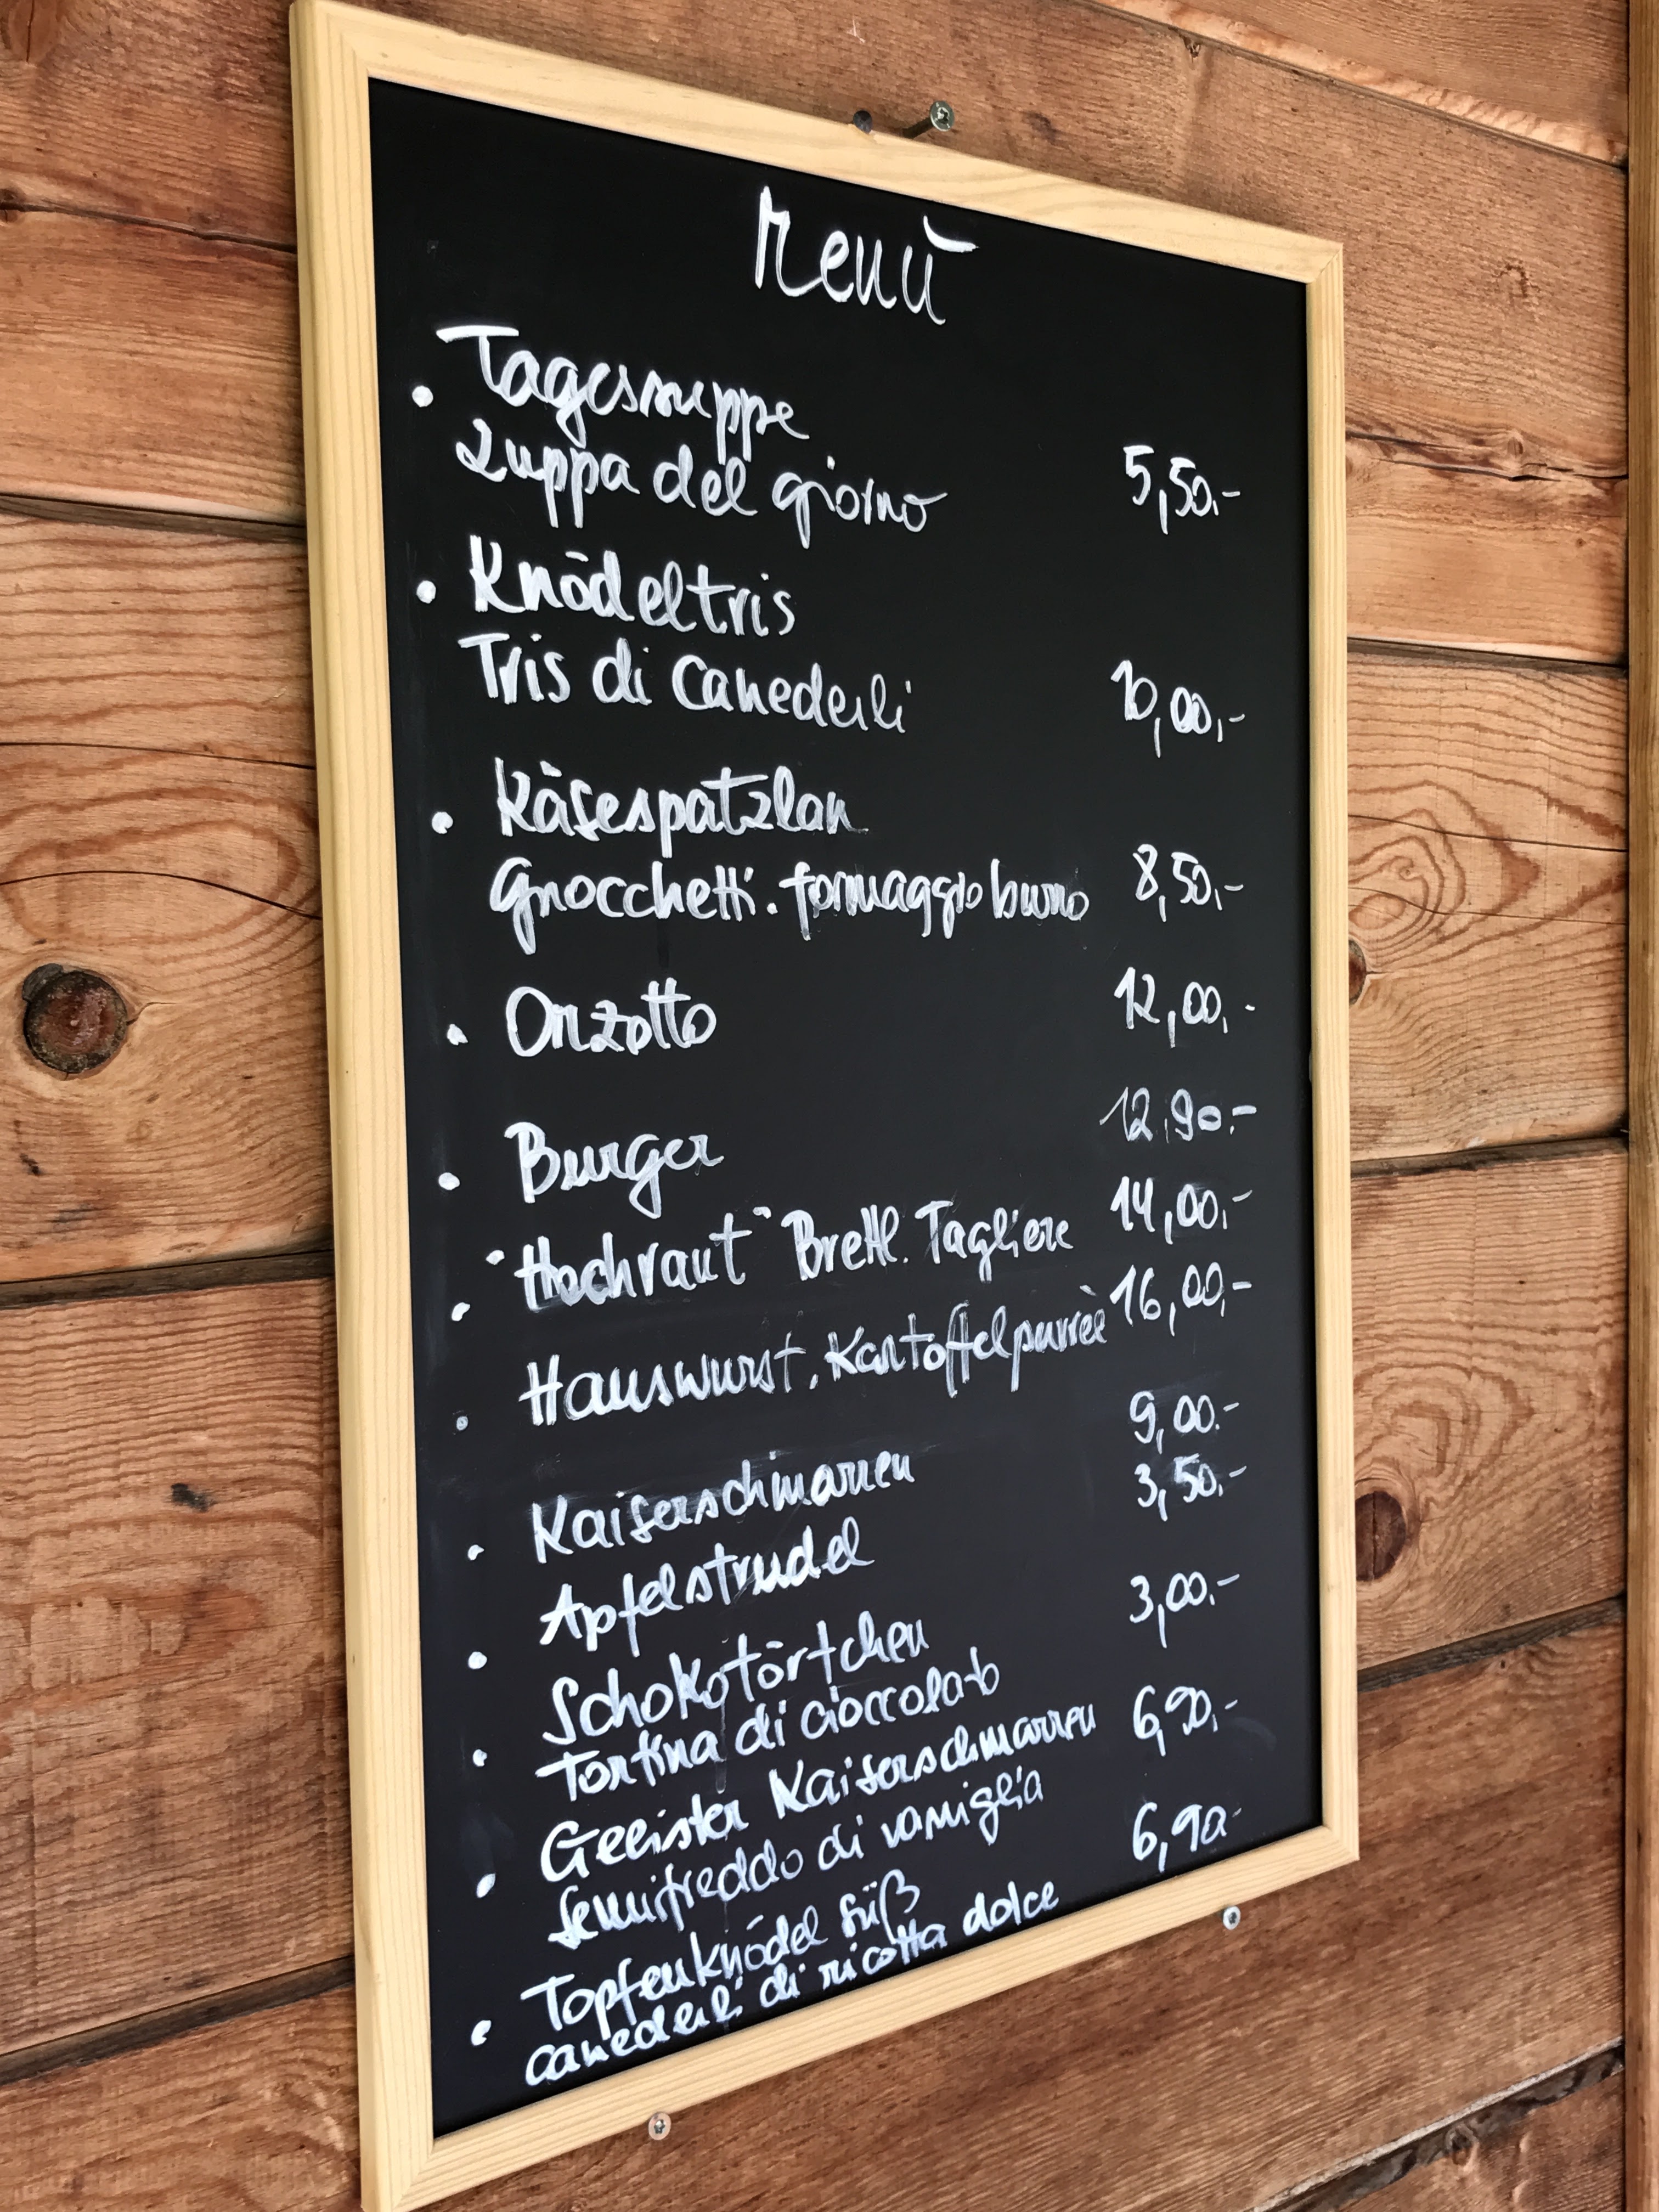 Menü
• Tagessuppe
Zuppa del giorno 5,50.-
• Knödeltris
Tris di Canederli 10,00,-
• Käsespatzlan
Gnocchetti. formaggio burro 8,50,-
• Orzotto 12,00,-
• Burger 12,90.-
• "Hochraut" Brettl. Tagliere 14,00,-
• Hauswurst, Kartoffelpurreè 16,00,-
• Kaiserschmarren 9,00.-
• Apfelstrudel 3,50,-
• Schokotörtchen 3,00.-
Tortina di cioccolato
• Geeister Kaiserschmarren 6,90,-
Semifreddo di vaniglia
• Topfenknödel süß 6,90-
canederli di ricotta dolce